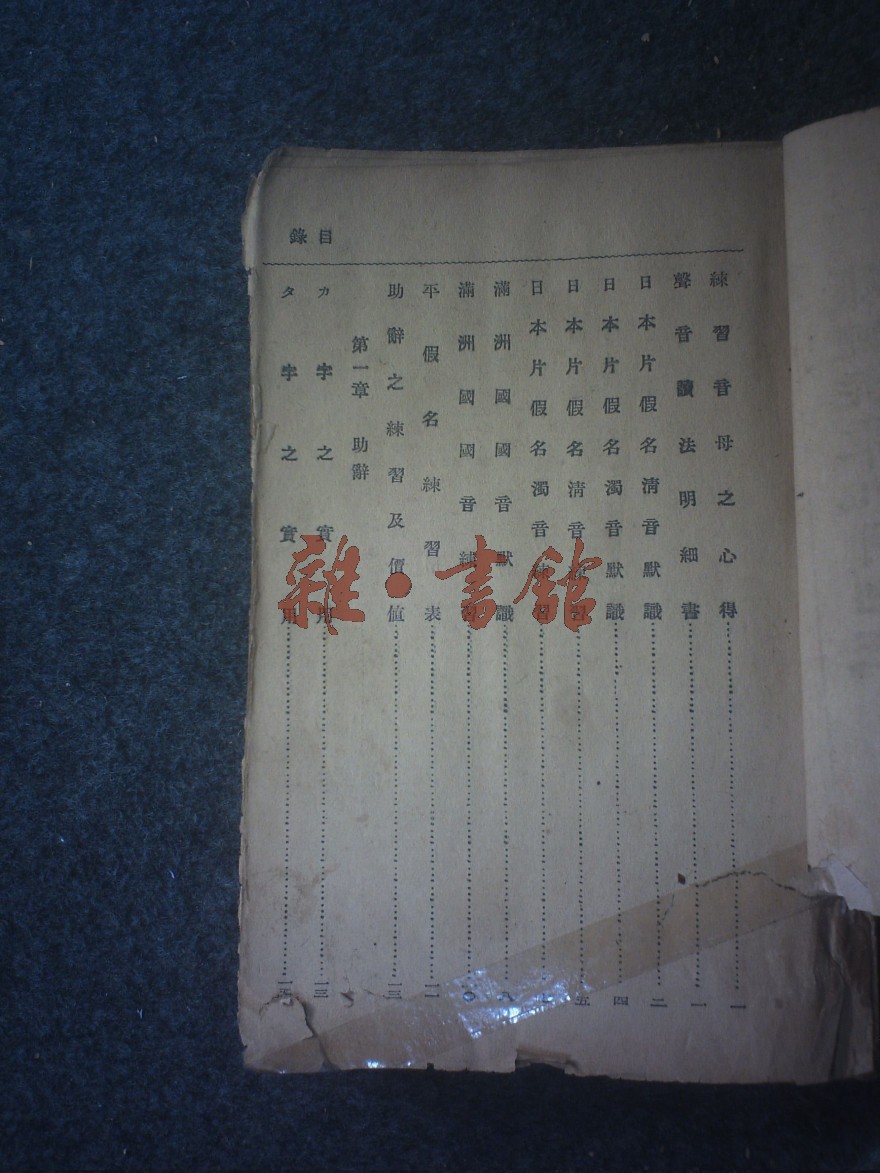 目錄
練習音母之心得……一
聲音讀法明細書……一
日本片假名清音默識……二
日本片假名濁音默識……四
日本片假名清音練習……五
日本片假名濁音練習……七
滿洲國國音默識……八
滿洲國國音練習……
平假名練習表……一一
助辭之練習及價值……一三
第一章 助辭
カ字之實用……一三
タ字之實用……一五
雜·書館